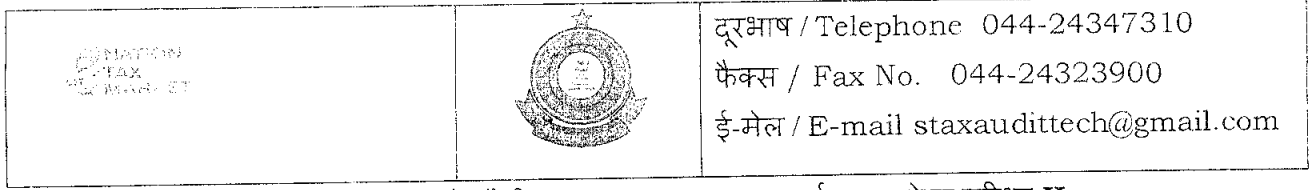 NATION
TAX
MARKET
दूरभाष / Telephone 044-24347310
फैक्स / Fax No. 044-24323900
ई-मेल / E-mail staxaudittech@gmail.com